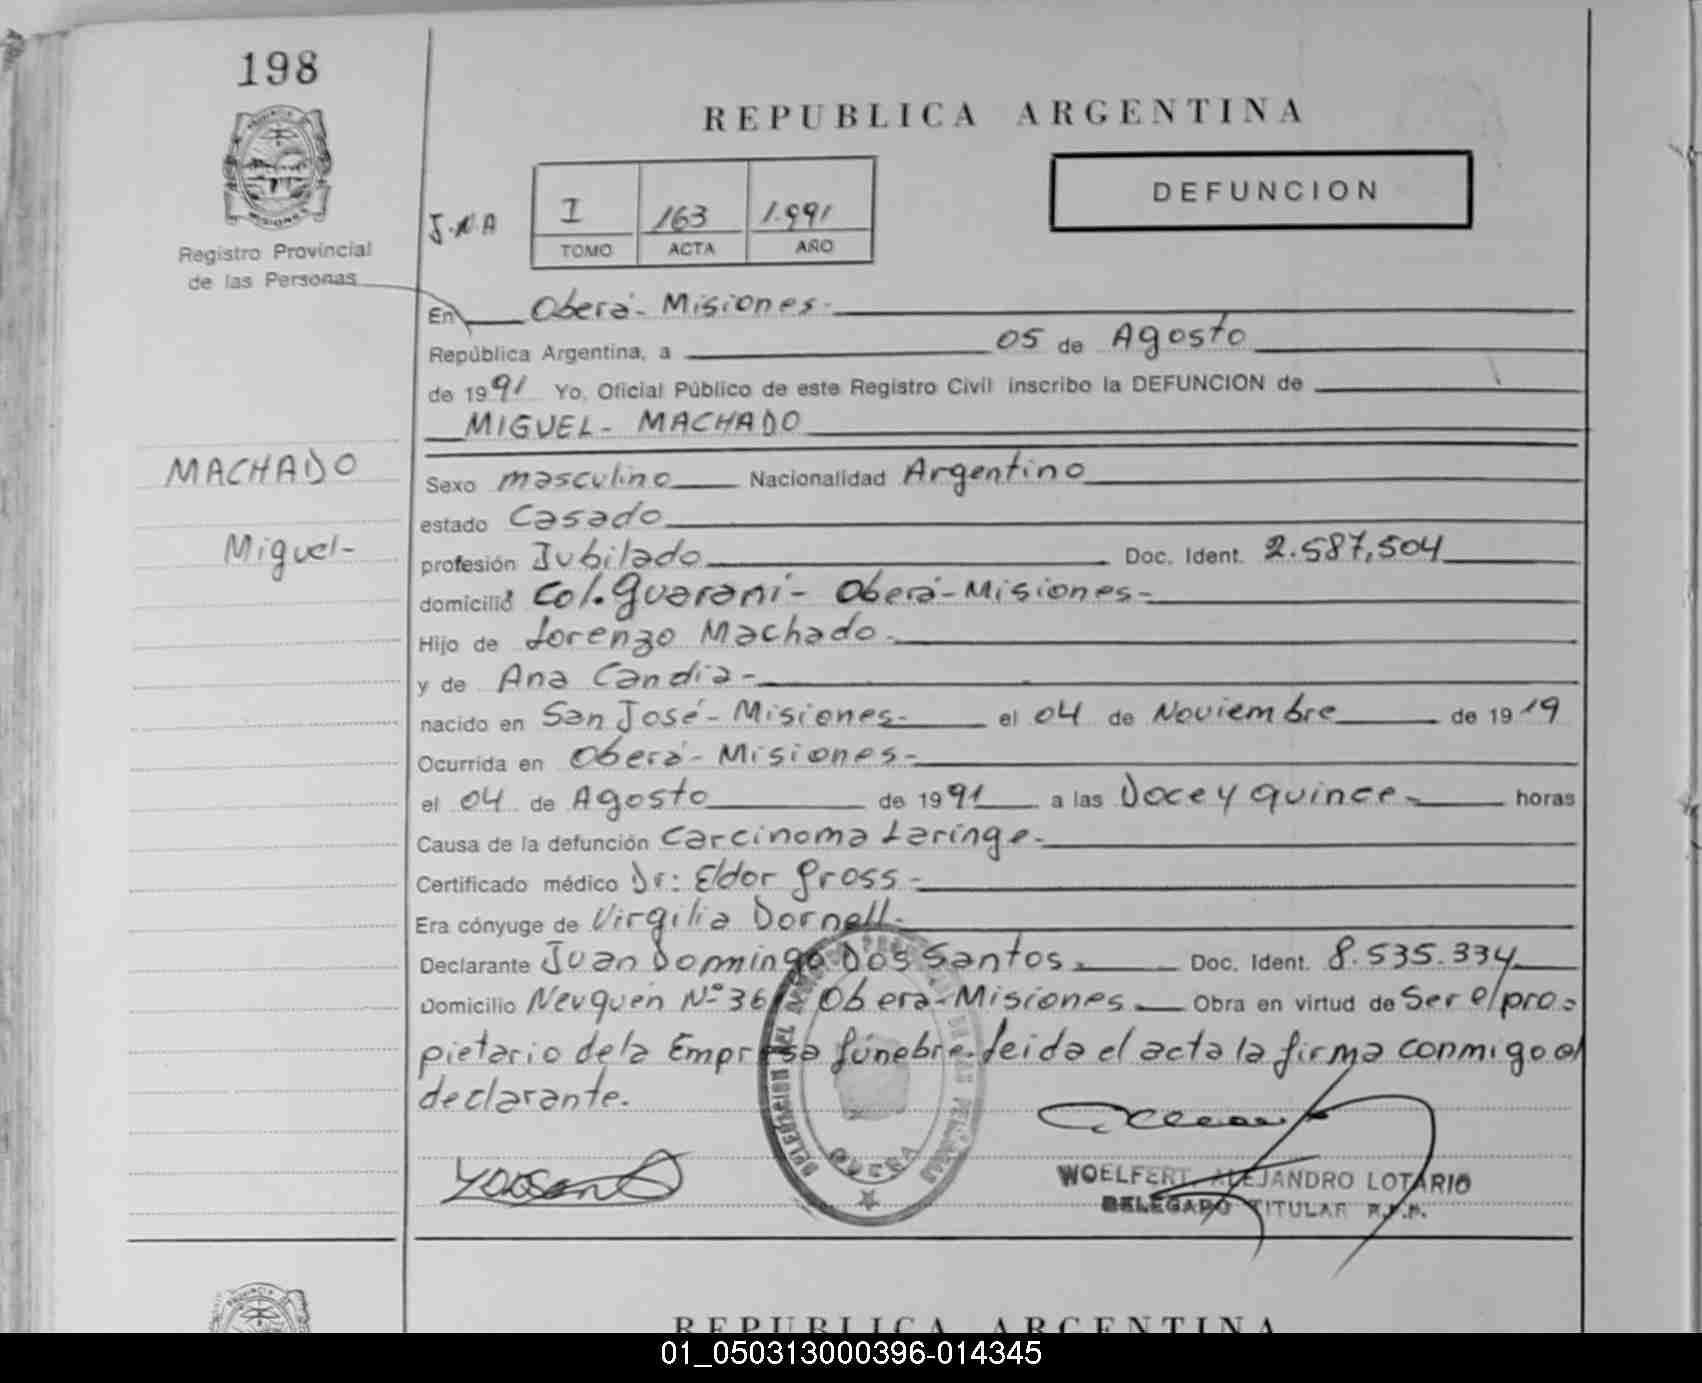 198
REPUBLICA ARGENTINA
MISIONES
Registro Provincial
de las Personas
J.N.A
I 163 1.991
TOMO ACTA AÑO
DEFUNCION
En Oberá- Misiones-
República Argentina, a 05 de Agosto
de 1991 Yo, Oficial Público de este Registro Civil inscribo la DEFUNCION de
MIGUEL- MACHADO
MACHADO
Miguel-
Sexo masculino Nacionalidad Argentino
estado Casado
profesión Jubilado Doc. Ident. 2.587,504
domicilio Col. Guaraní- Oberá-Misiones-
Hijo de Lorenzo Machado.
y de Ana Candia-
nacido en San José- Misiones- el 04 de Noviembre de 1919
Ocurrida en Oberá- Misiones-
el 04 de Agosto de 1991 a las Doce y quince- horas
Causa de la defunción Carcinoma Laringe-
Certificado médico Dr: Eldor Gross-
Era cónyuge de Virgilia Dornell-
Declarante Juan Domingo Dos Santos. Doc. Ident. 8.535.334
Domicilio Neuquén Nº 36 Oberá-Misiones. Obra en virtud de Ser el pro-
pietario de la Empresa fúnebre. Leida el acta la firma conmigo el
declarante.
DELEGACION DEL REGISTRO PROVINCIAL DE LAS PERSONAS
OBERA
WOELFERT ALEJANDRO LOTARIO
DELEGADO TITULAR R.P.P.
REPUBLICA ARGENTINA
01_050313000396-014345